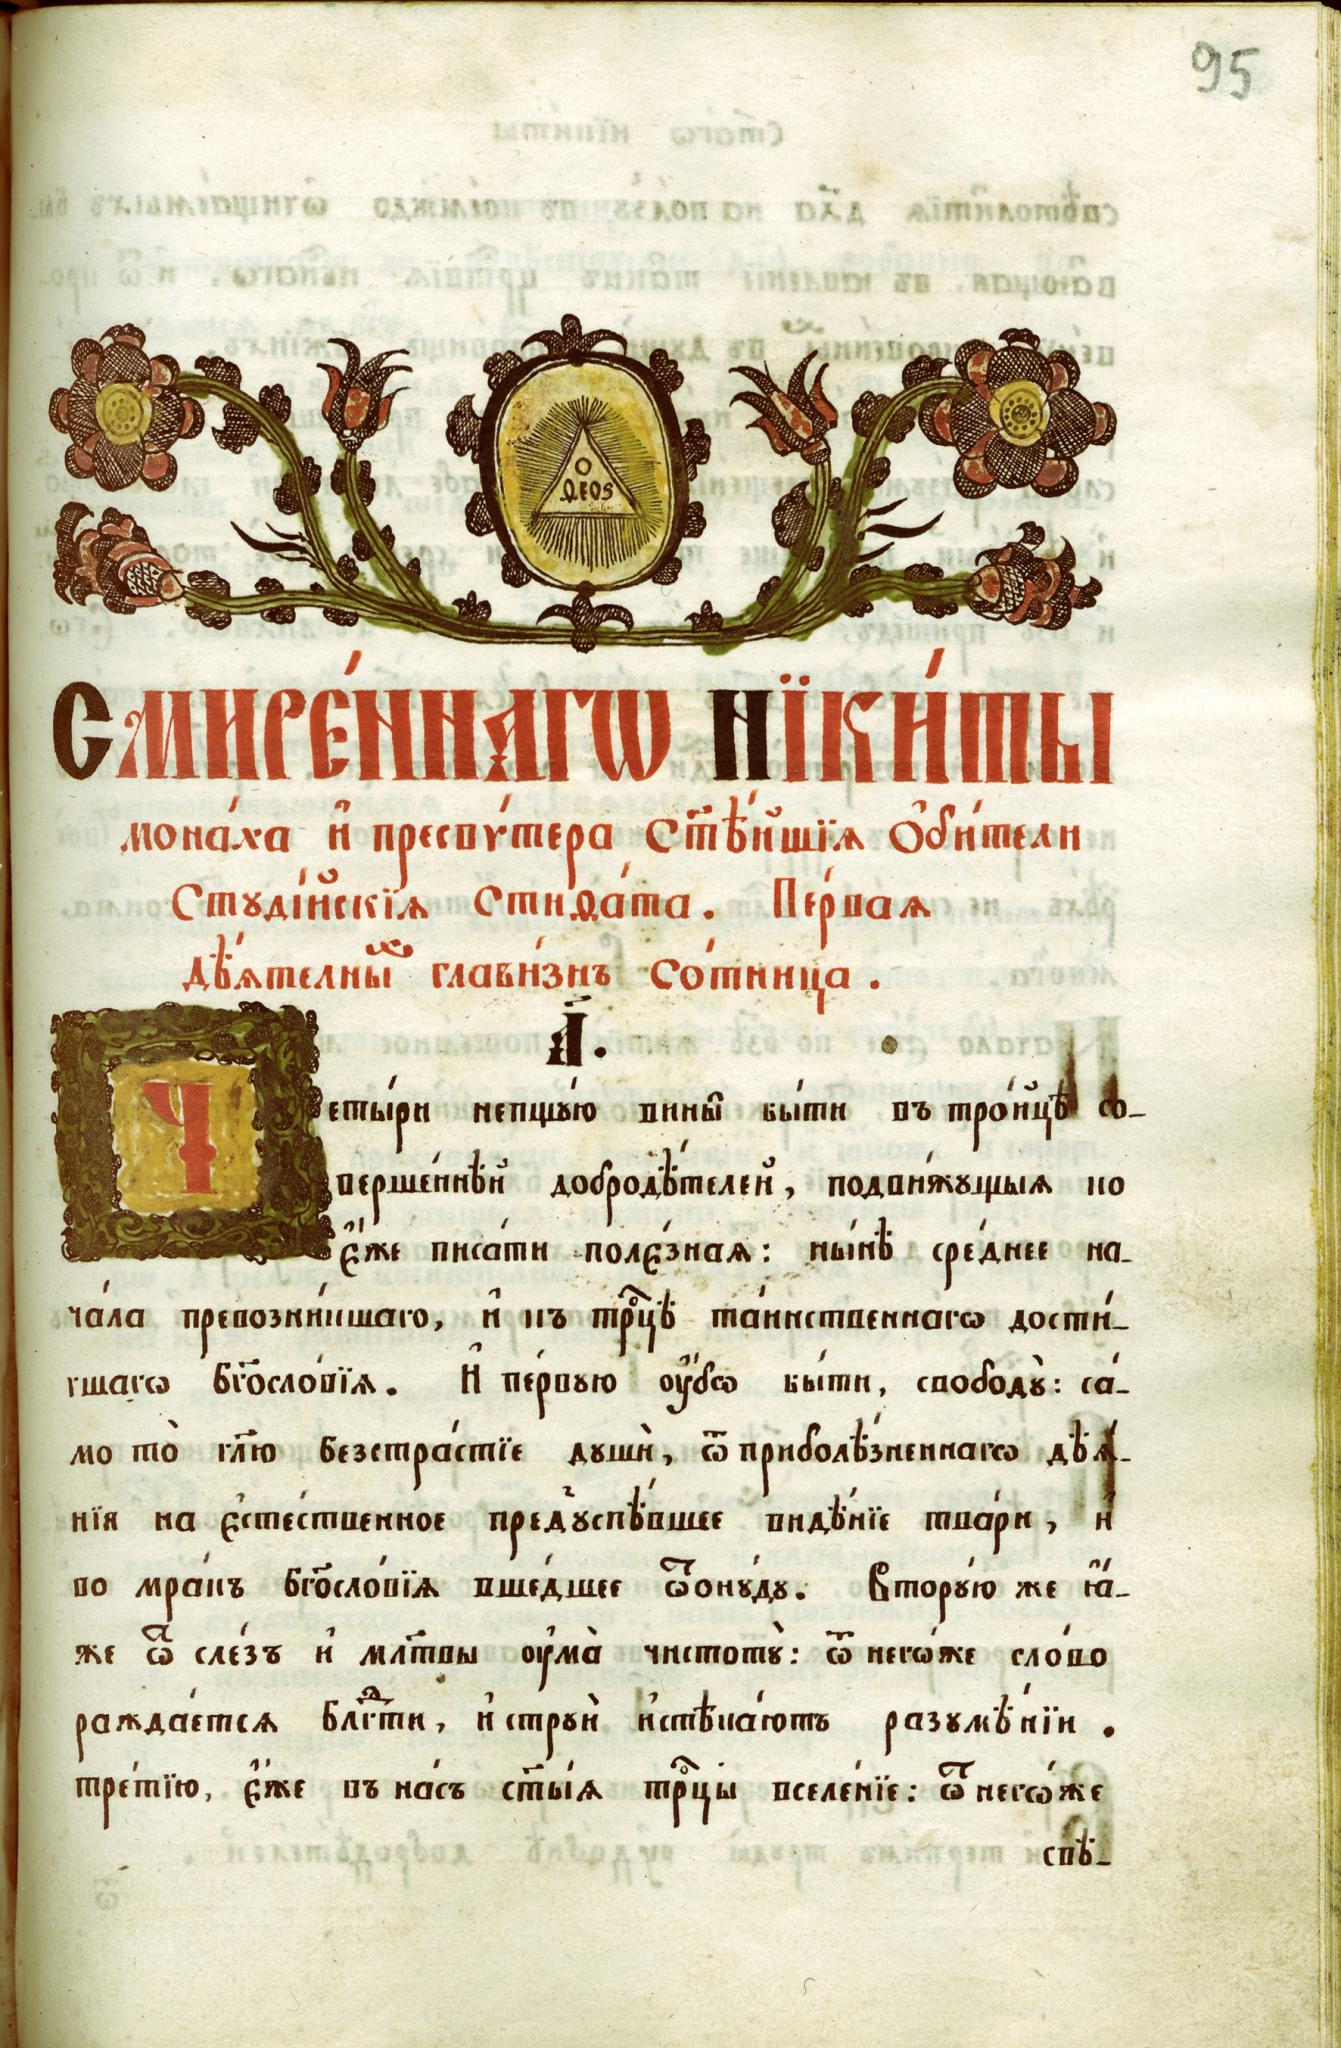 95
Ο
ѲΕΟΣ
СМИРЕ́ННАГѠ НЇКИ́ТЫ
мона́ха и҆ пресвѵ́тера ст҃ѣ́йшїѧ ѻ҆би́тели
Стꙋді́йскїѧ Стиѳа́та. Пе́рваѧ
дѣ́ѧтелныⷯ глави́знъ Со́тница.
А҃.
Четы́ри непщꙋ́ю вины̑ бы́ти въ тро́йцѣ со-
верше́ннѣй добродѣ́телей, подви́жꙋщыѧ но
є҆́же писа́ти полє́знаѧ: ны́нѣ сре́днее на-
ча́ла превозни́кшаго, и҆ къ трⷪ҇цѣ таи́нственнагѡ дости́-
гшагѡ бг҃осло́вїѧ. И҆ пе́рвꙋю ᲂу҆́бѡ бы́ти, свободꙋ̀: са́-
мо то̀ гл҃ю безстра́стїе дꙋшѝ, ѿ приболѣ́зненнагѡ дѣѧ́-
нїѧ на є҆сте́ственное предꙋспѣ́вшее видѣ́нїе тва́ри, и҆
во мра́къ бг҃осло́вїѧ вше́дшее ѿонꙋ́дꙋ. Вторꙋ́ю же ꙗ҆́-
же ѿ сле́зъ и҆ мл҃твы ᲂу҆ма̀ чистотꙋ̀: ѿ негѡ́же сло́во
ражда́етсѧ блгⷣти, и҆ стрꙋи̑ и҆стѣка́ютъ разꙋмѣ́нїи.
тре́тїю, є҆́же въ на́съ ст҃ы́ѧ трⷪ҇цы вселе́нїе: ѿ негѡ́же
спѣ-